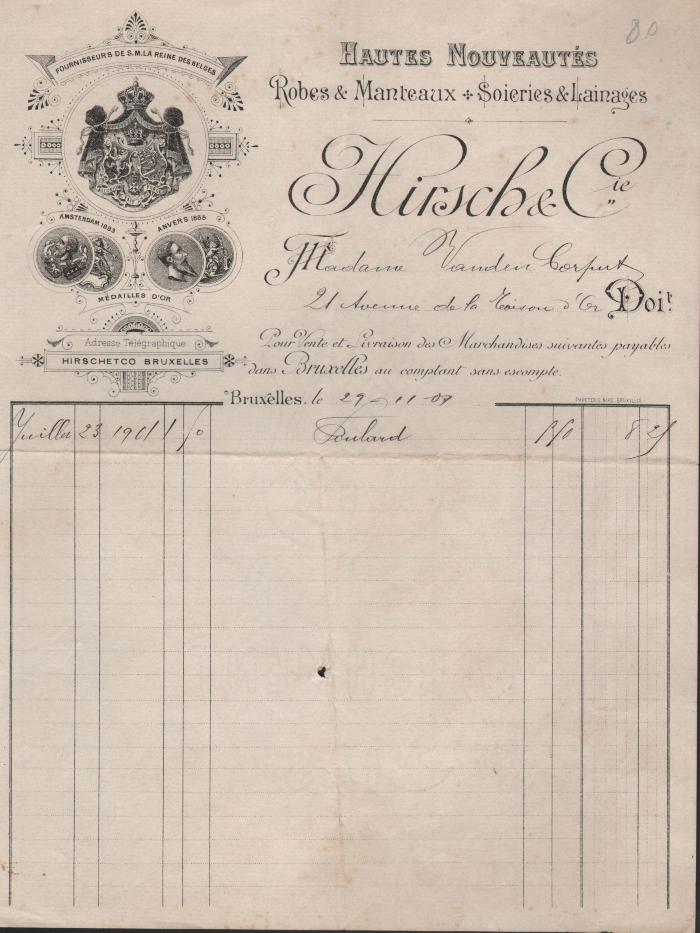 80
FOURNISSEURS DE S.M. LA REINE DES BELGES
AMSTERDAM 1883
ANVERS 1885
MÉDAILLES D'OR
Adresse Télégraphique
HIRSCHETCO BRUXELLES
HAUTES NOUVEAUTÉS
Robes & Manteaux + Soieries & Lainages
Hirsch & Cie
Madame Vanden Corput
21 Avenue de la Toison d'Or Doit
Pour Vente et Livraison des Marchandises suivantes payables
dans Bruxelles au comptant sans escompte.
Bruxelles, le 29-11-07
PAPETERIE NIAS, BRUXELLES
Juillet 23 1 50 Foulard 5 50 8 25